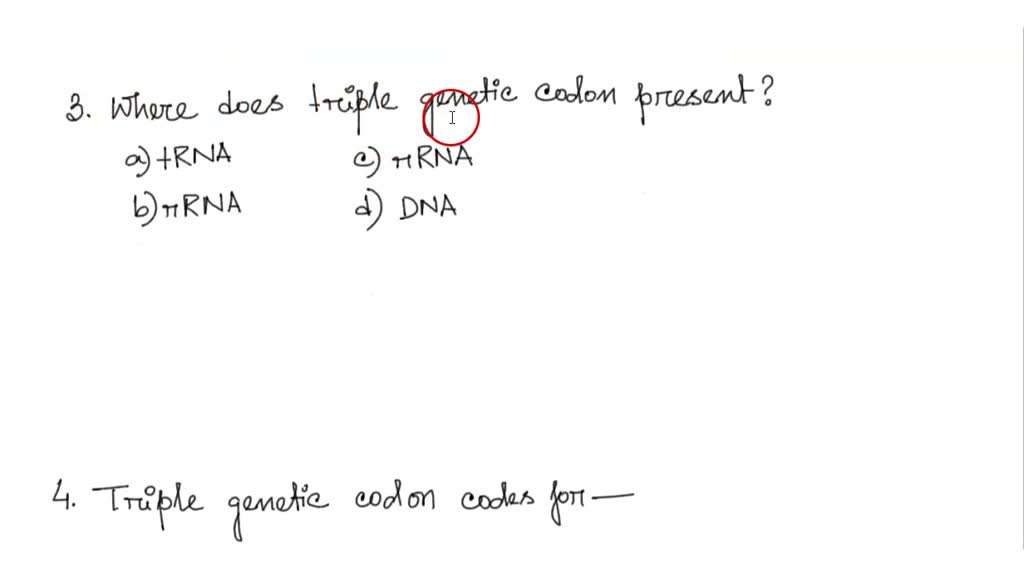 3. Where does triple genetic codon present?
a) tRNA c) rRNA
b) rRNA d) DNA
4. Triple genetic codon codes for —